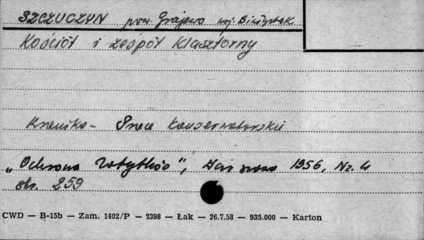 SZCZUCZYN pow. Grajewo woj. Białystok
Kościół i zespół klasztorny
Kronika - Prace konserwatorskie
"Ochrona Zabytków", Warszawa 1956, Nr. 4
str. 259
CWD — B-15b — Zam. 1402/P — 2398 — Łak — 26.7.58 — 935.000 — Karton